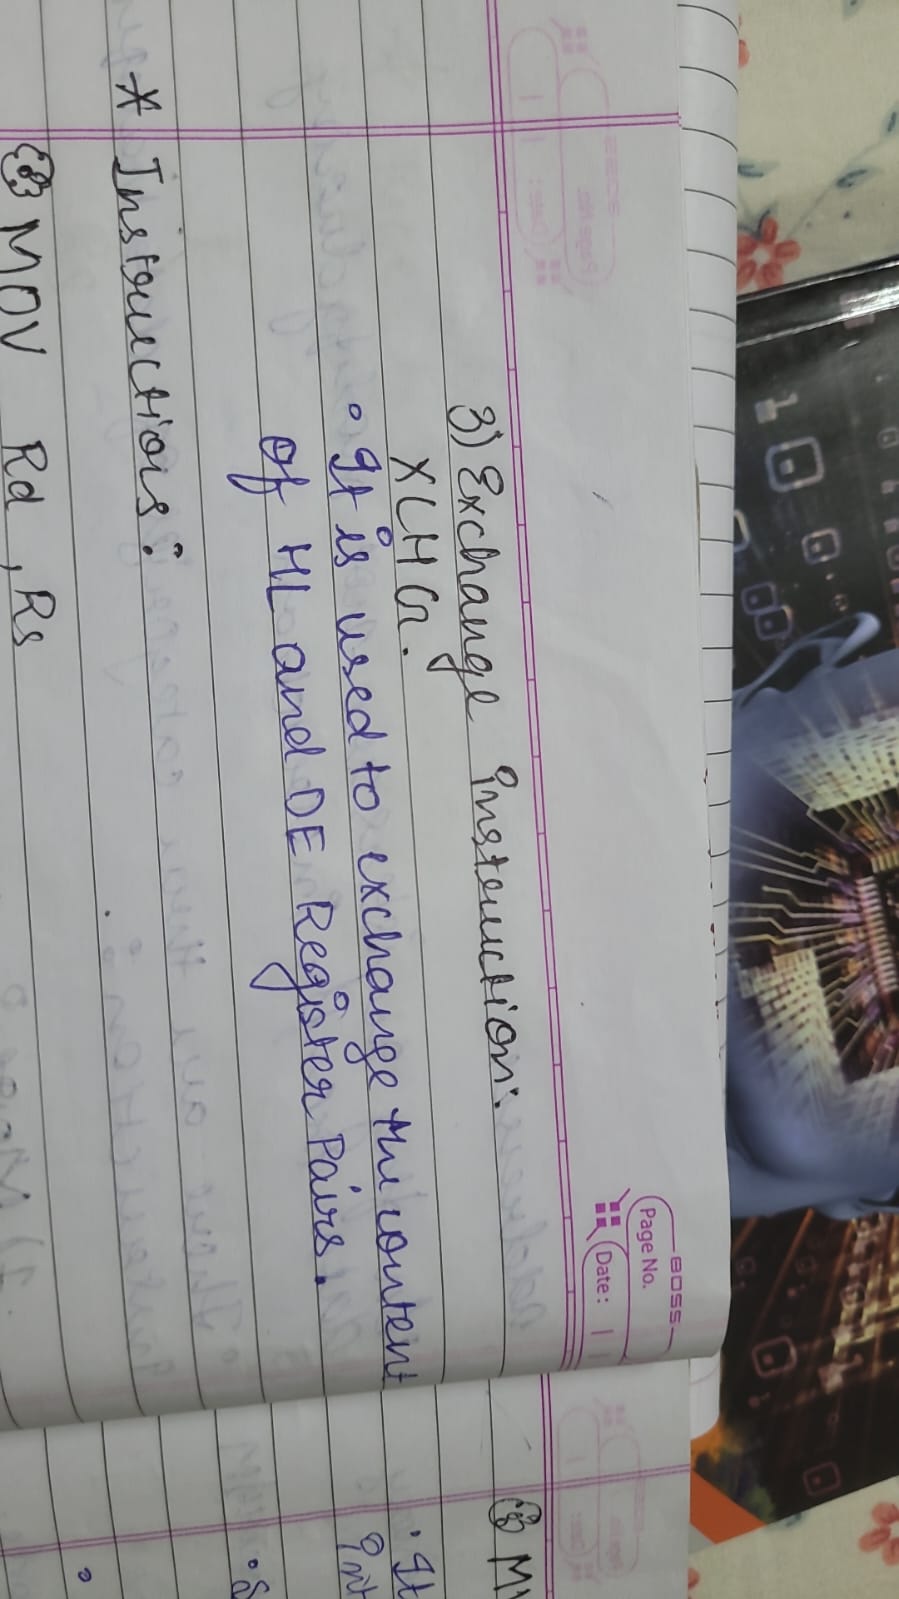 BOSS
Page No.
Date:
3) Exchange instruction:
XCHG.
• It is used to exchange the content
of HL and DE Register Pairs.
* Instructions:
MOV Rd, Rs
• It